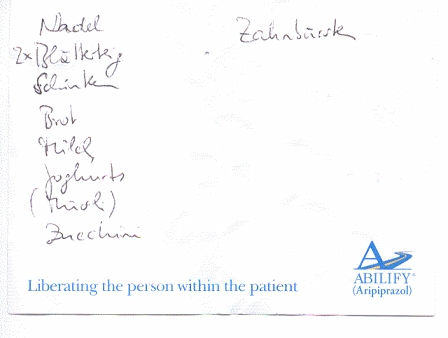 Nudel
2x Blätterteig
Schinken
Brot
Milch
Joghurts
(Müsli)
Zucchini
Zahnbürste
Liberating the person within the patient
ABILIFY®
(Aripiprazol)